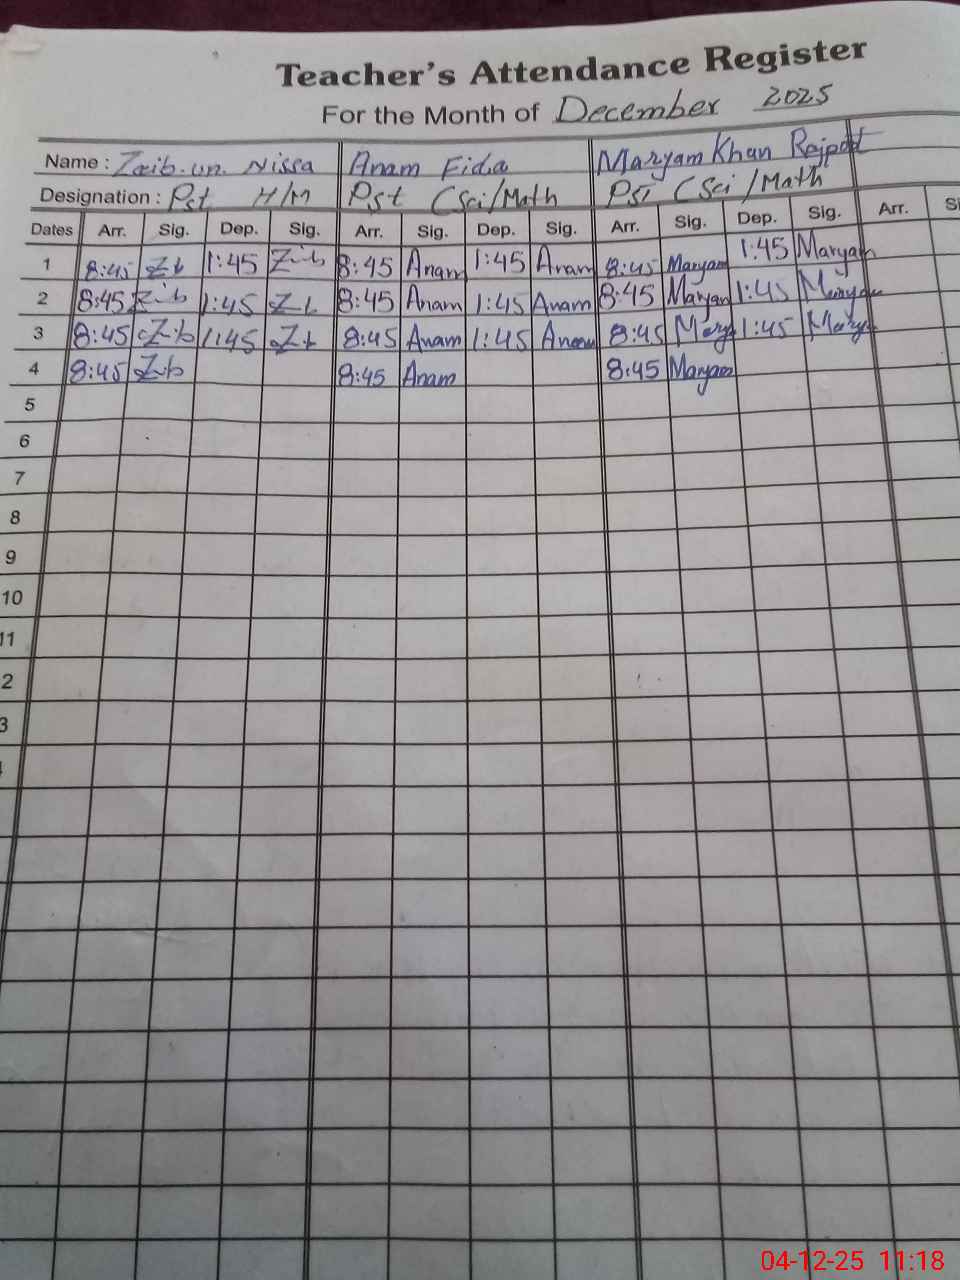 Teacher's Attendance Register
For the Month of December 2025
Name : Zaib.un.Nissa Anam Fida Maryam Khan Rajpoot
Designation : Pst H/M Pst (Sci/Math Pst (Sci/Math
Dates Arr. Sig. Dep. Sig. Arr. Sig. Dep. Sig. Arr. Sig. Dep. Sig. Arr. Si
1 8:45 Z.b 1:45 Z.b 8:45 Anam 1:45 Anam 8:45 Maryam 1:45 Maryam
2 8:45 Z.b 1:45 Z.b 8:45 Anam 1:45 Anam 8:45 Maryam 1:45 Maryam
3 8:45 Z.b 1:45 Z.b 8:45 Anam 1:45 Anam 8:45 Mary 1:45 Mary
4 8:45 Z.b 8:45 Anam 8:45 Maryam
5
6
7
8
9
10
11
2
3
04-12-25 11:18